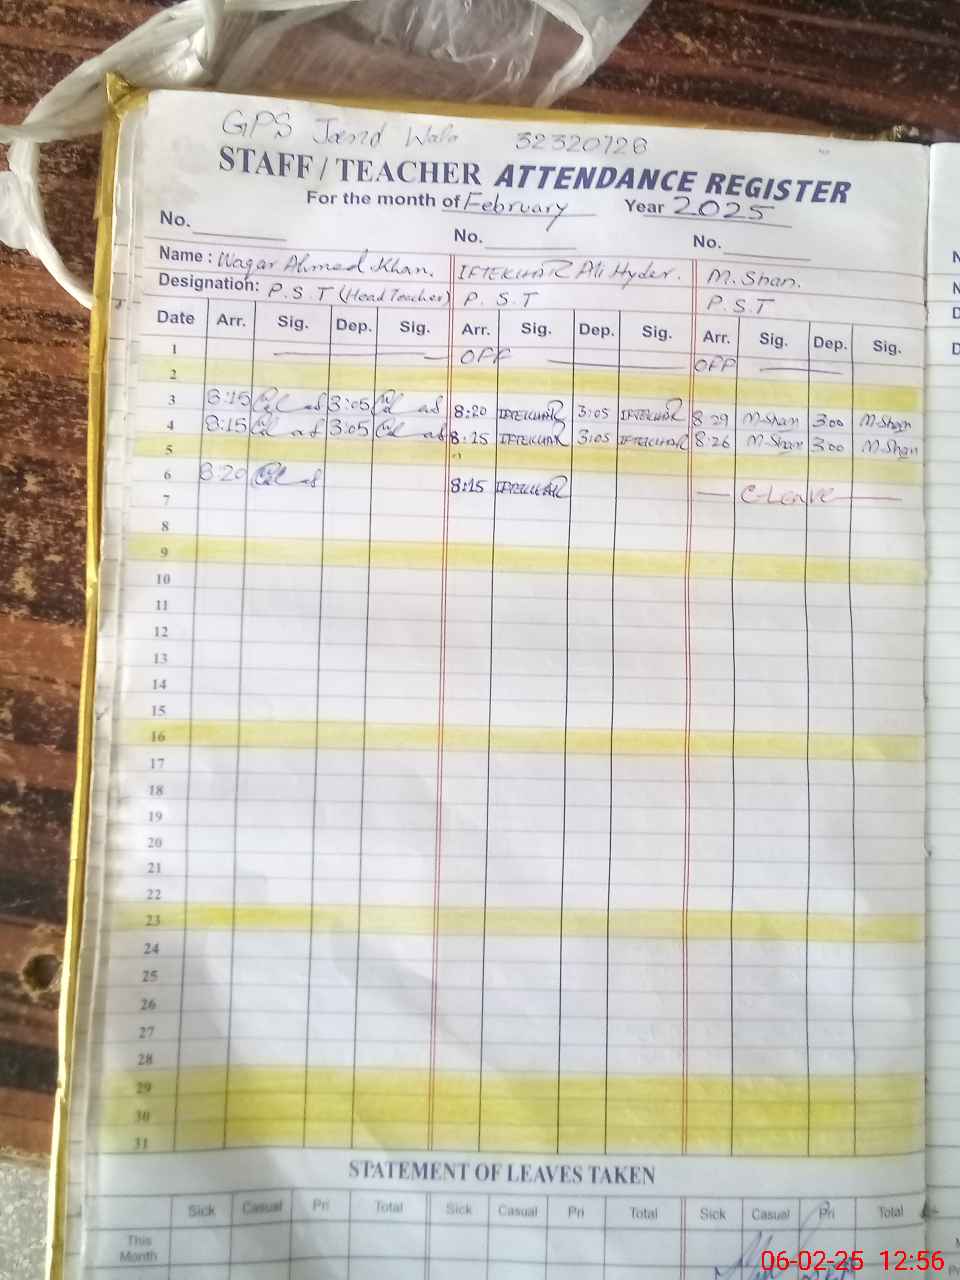 GPS Jand Wala 32320126
STAFF / TEACHER ATTENDANCE REGISTER
For the month of February Year 2025
No. No. No.
Name : Waqar Ahmed Khan. IFTEKHAR Ali Hyder. M. Shan.
Designation: P.S.T (Head Teacher) P.S.T P.S.T
Date Arr. Sig. Dep. Sig. Arr. Sig. Dep. Sig. Arr. Sig. Dep. Sig.
1 OFF OFF
2
3 8:15 3:05 8:20 IFTEKHAR 3:05 IFTEKHAR 8:29 M-Shan 3:00 M-Shan
4 8:15 3:05 8:15 IFTEKHAR 3:05 IFTEKHAR 8:26 M-Shan 3:00 M-Shan
5
6 8:20 8:15 IFTEKHAR C-Leave
7
8
9
10
11
12
13
14
15
16
17
18
19
20
21
22
23
24
25
26
27
28
29
30
31
STATEMENT OF LEAVES TAKEN
Sick Casual Pri Total Sick Casual Pri Total Sick Casual Pri Total
This Month
06-02-25 12:56